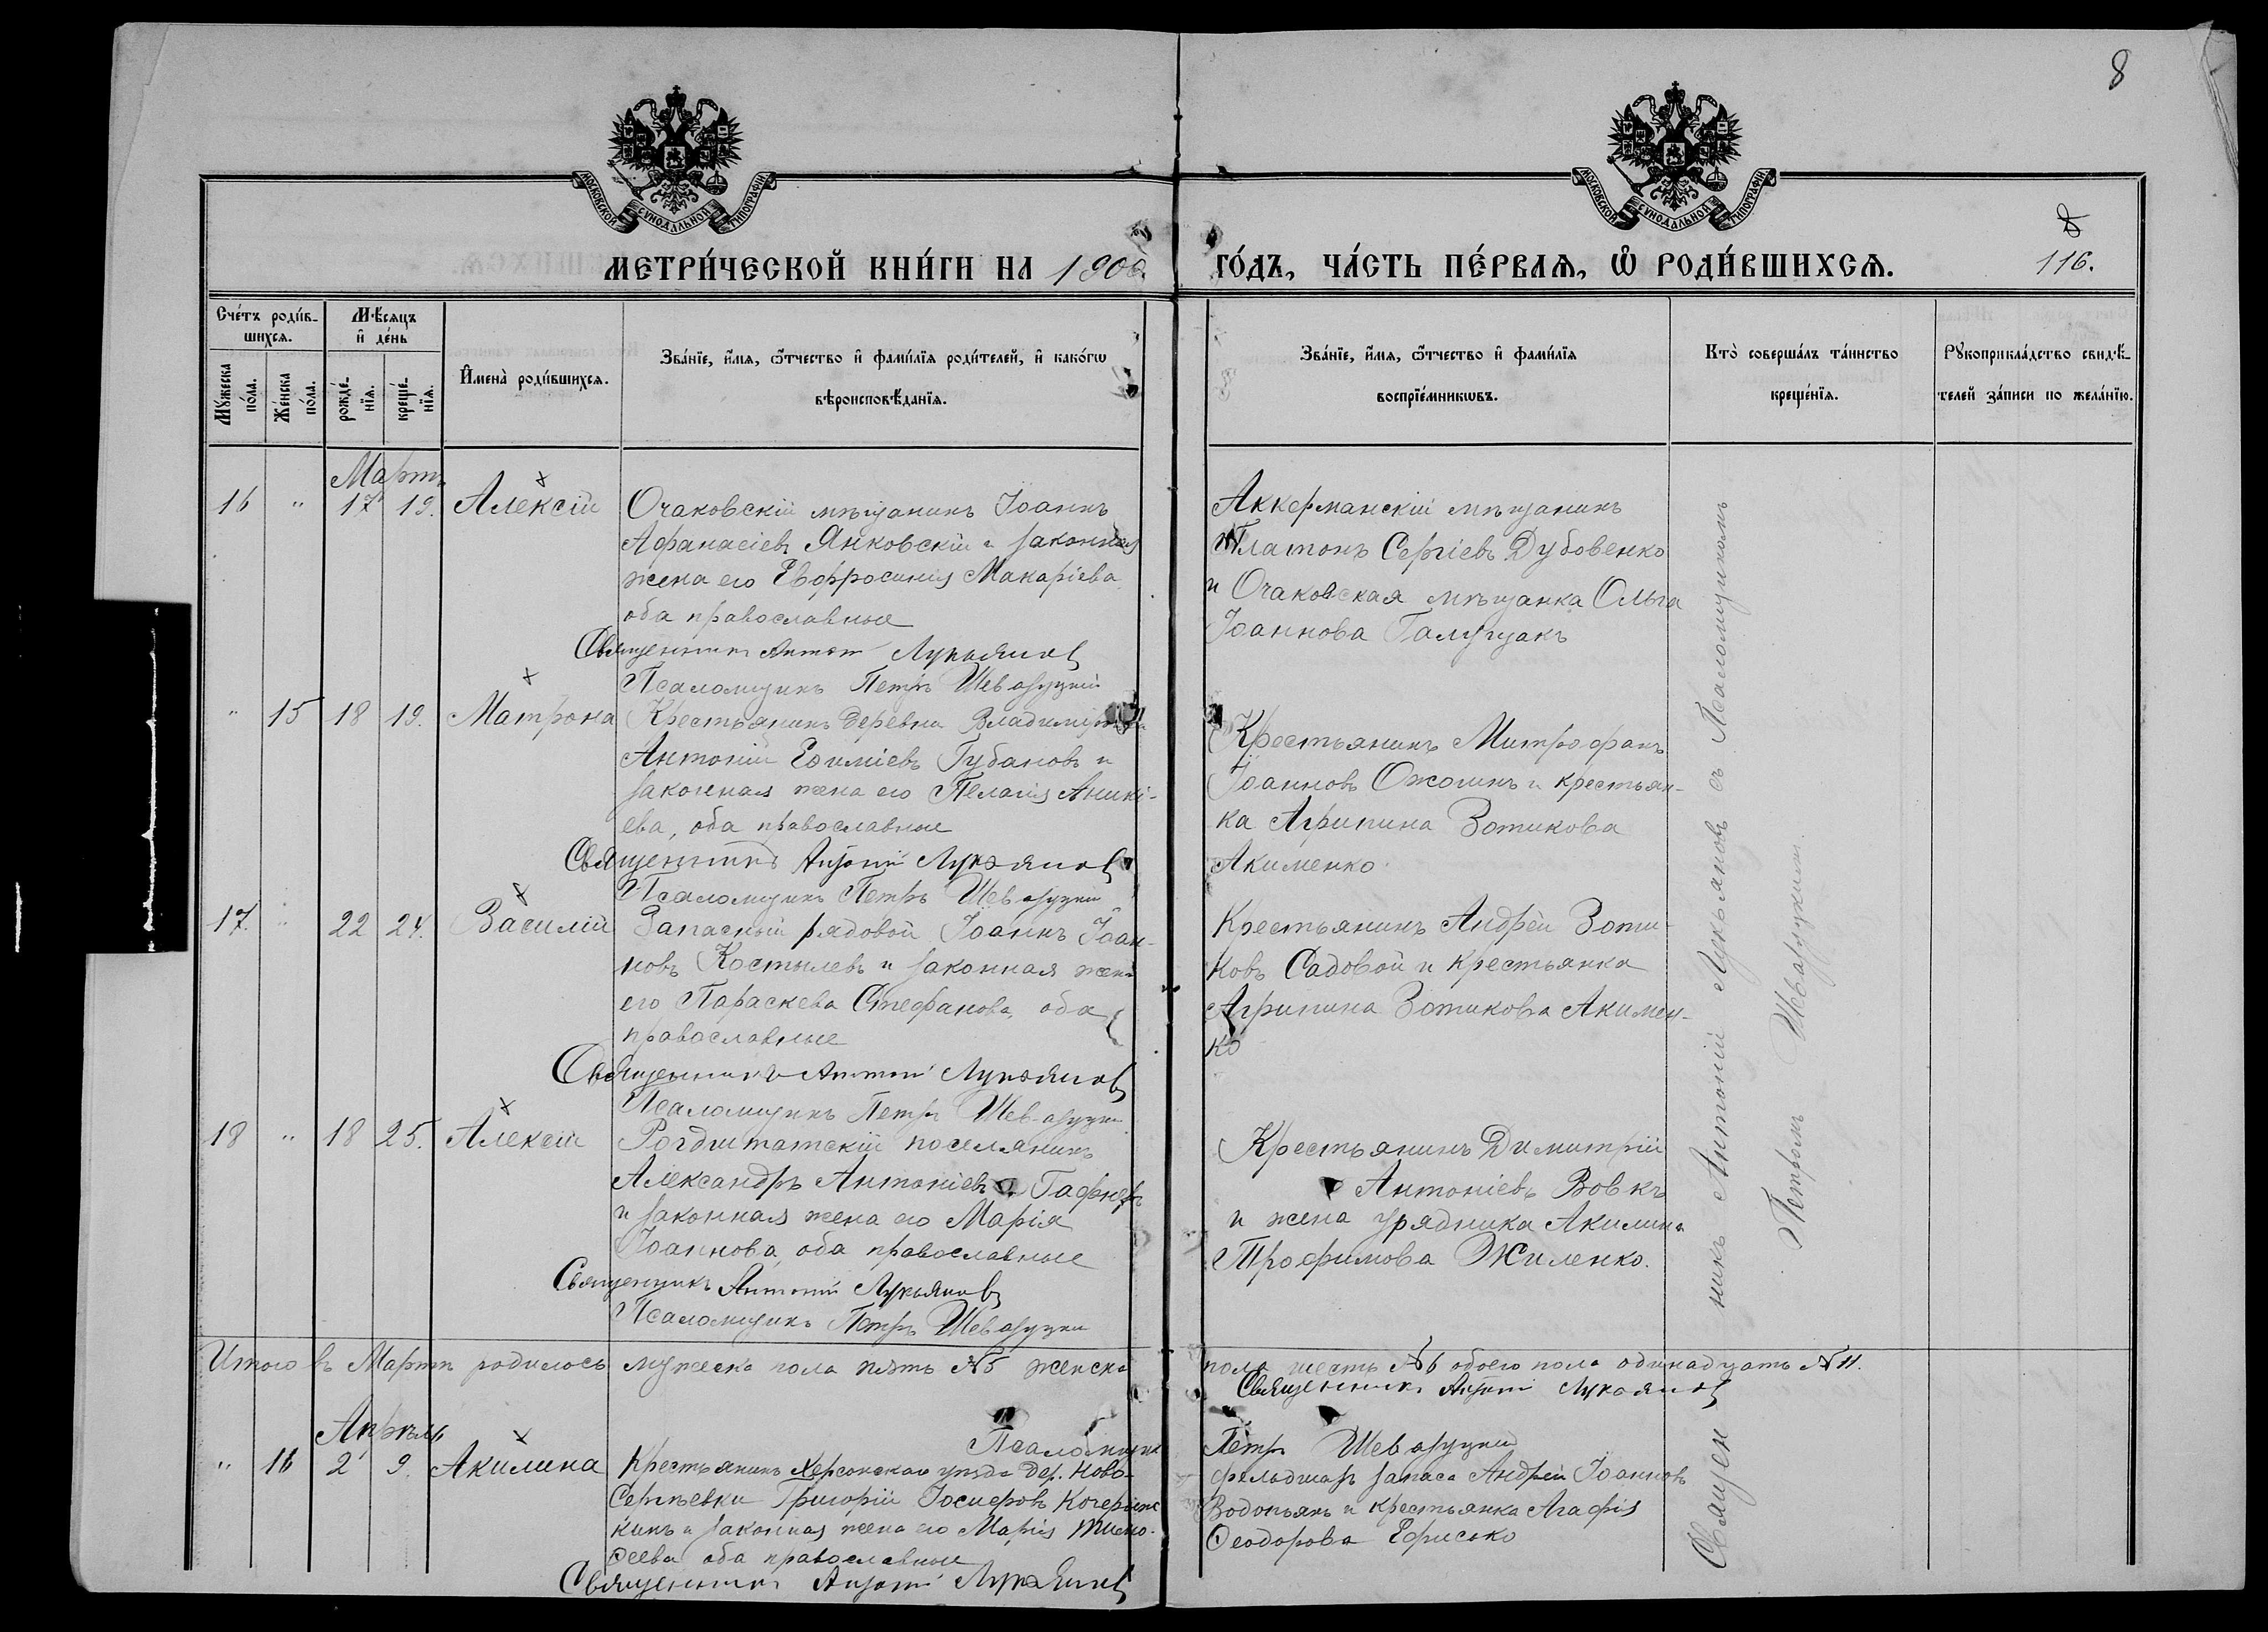 8
МОСКОВСКОЙ СѴНОДАЛЬНОЙ ТИПОГРАФІИ
МОСКОВСКОЙ СѴНОДАЛЬНОЙ ТИПОГРАФІИ
МЕТРИ́ЧЕСКОЙ КНИ́ГИ НА 1906 ГО́ДЪ, ЧА́СТЬ ПЕ́РВАѦ, Ѽ РОДИ́ВШИХСѦ.
116.
Сче́тъ роди́в-
шихсѧ.
Мѣ́сѧцъ
и҆ де́нь
Мꙋ́жеска
по́ла.
Же́нска
по́ла.
рожде́-
нїѧ.
креще́-
нїѧ.
И҆мена̀ роди́вшихсѧ.
Зва́нїе, и҆́мѧ, ѻ҆́тчество и҆ фами́лїѧ роди́телей, и҆ како́гѡ
вѣроисповѣ́данїѧ.
Зва́нїе, и҆́мѧ, ѻ҆́тчество и҆ фами́лїѧ
воспрїе́мникѡвъ.
Кто̀ соверша́лъ та́инство
креще́нїѧ.
Рꙋкоприкла́дство свидѣ́-
телей за́писи по жела́нїю.
Мартъ
16 " 17 19. Алексій
Очаковскій мѣщанинъ Іоаннъ
Афанасіевъ Янковскій и законная
жена его Евфросинія Макаріева
оба православные
Священникъ Антоній Лукьяновъ
Псаломщикъ Петръ Шеваруцкій
Аккерманскій мѣщанинъ
Платонъ Сергіевъ Дубовенко
и Очаковская мѣщанка Ольга
Іоаннова Галущакъ
" 15 18 19. Матрона
Крестьянинъ деревни
Антоній Ефиміевъ Губановъ и
законная жена его Пелагія Аникі-
ева, оба православные
Священникъ Антоній Лукьяновъ
Псаломщикъ Петръ Шеваруцкій
Крестьянинъ Митрофанъ
Іоанновъ Ожогинъ и крестьян-
ка Агрипина Зотикова
Акименко
17. " 22 24. Василій
Запасный рядовой Іоаннъ Іоан-
новъ Костылевъ и законная жена
его Параскева Стефанова, оба
православные
Священникъ Антоній Лукьяновъ
Псаломщикъ Петръ Шеваруцкій
Крестьянинъ Андрей Зоти-
ковъ Садовой и крестьянка
Агрипина Зотикова Акимен-
ко
18 " 18 25. Алексій
поселянинъ
Александръ Антоніевъ Гафнеръ
и законная жена его Марія
Іоаннова, оба православные
Священникъ Антоній Лукьяновъ
Псаломщикъ Петръ Шеваруцкій
Крестьянинъ Димитрій
Антоніевъ Вовкъ
и жена урядника Акилина
Трофимова Жиленко.
Итого въ Мартѣ родилось мужеска пола пять №5 женска пола шесть №6 обоего пола одинадцать №11.
Священникъ Антоній Лукьяновъ
Псаломщикъ Петръ Шеваруцкій
Апрѣль
" 16 2 9. Акилина
Крестьянинъ Херсонскаго уѣзда дер. Ново-
Сергѣевки Григорій Іосифовъ
кинъ и законная жена его Марія Тимо-
ѳеева оба православные
Священникъ Антоній Лукьяновъ
фельдшеръ запаса Андрей Іоанновъ
Водопьянъ и крестьянка Агафія
Ѳеодорова Ефисько
Священникъ Антоній Лукьяновъ съ Псаломщикомъ
Петромъ Шеваруцкимъ.